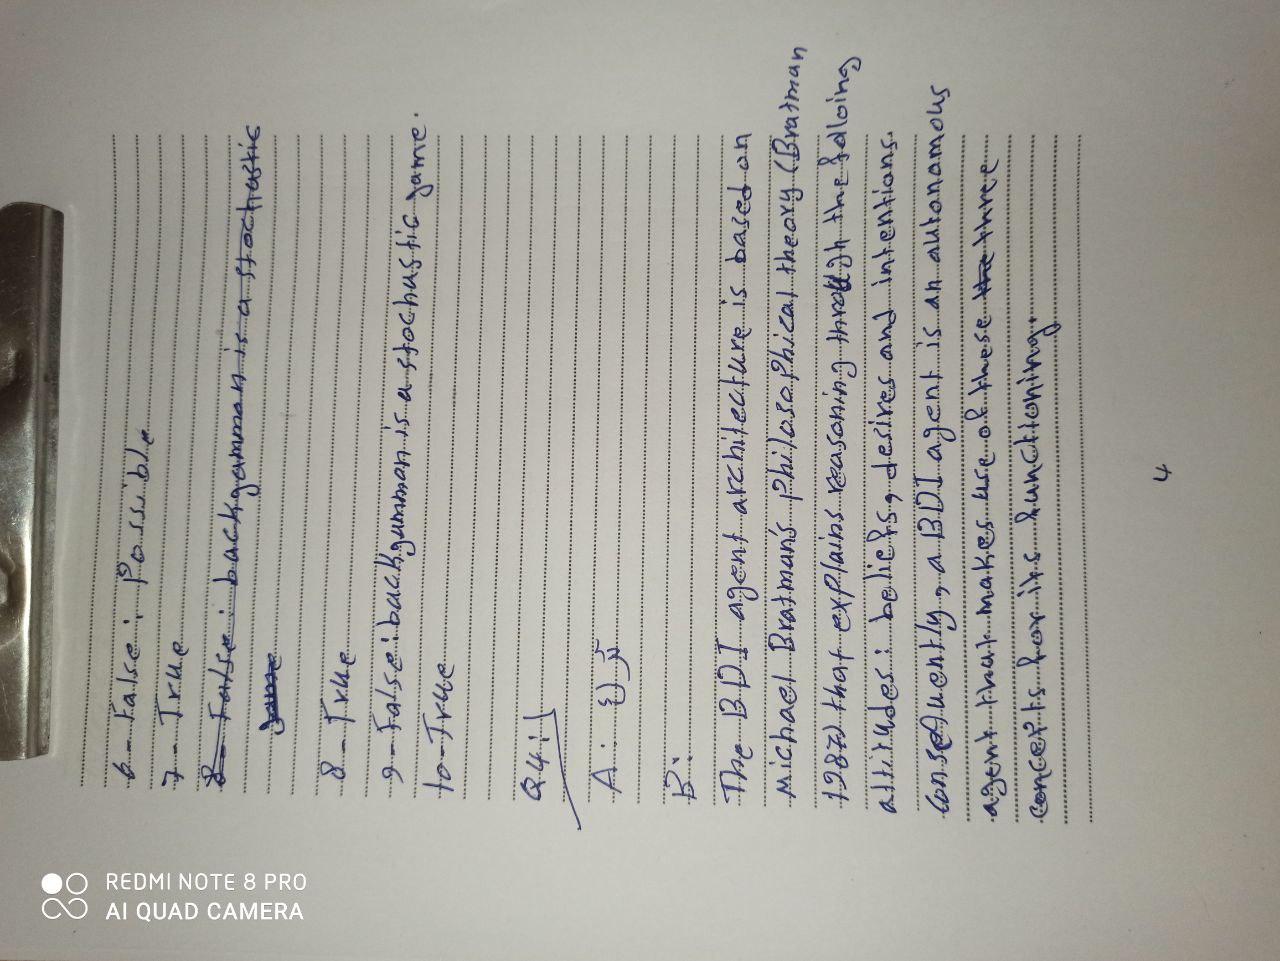 6- False: Possible
7- True
8- False: backgamman is a stochastic
game
8- True
9- False: backgamman is a stochastic game.
10- True
Q4:
A:
B:
The BDI agent architecture is based on
Michael Bratman's philosophical theory (Bratman
1987) that explains reasoning through the folloing
attitudes: beliefs, desires and intentions.
Consequently, a BDI agent is an autonamous
agent that makes use of these the three
concepts for its functioning.
4
REDMI NOTE 8 PRO
AI QUAD CAMERA